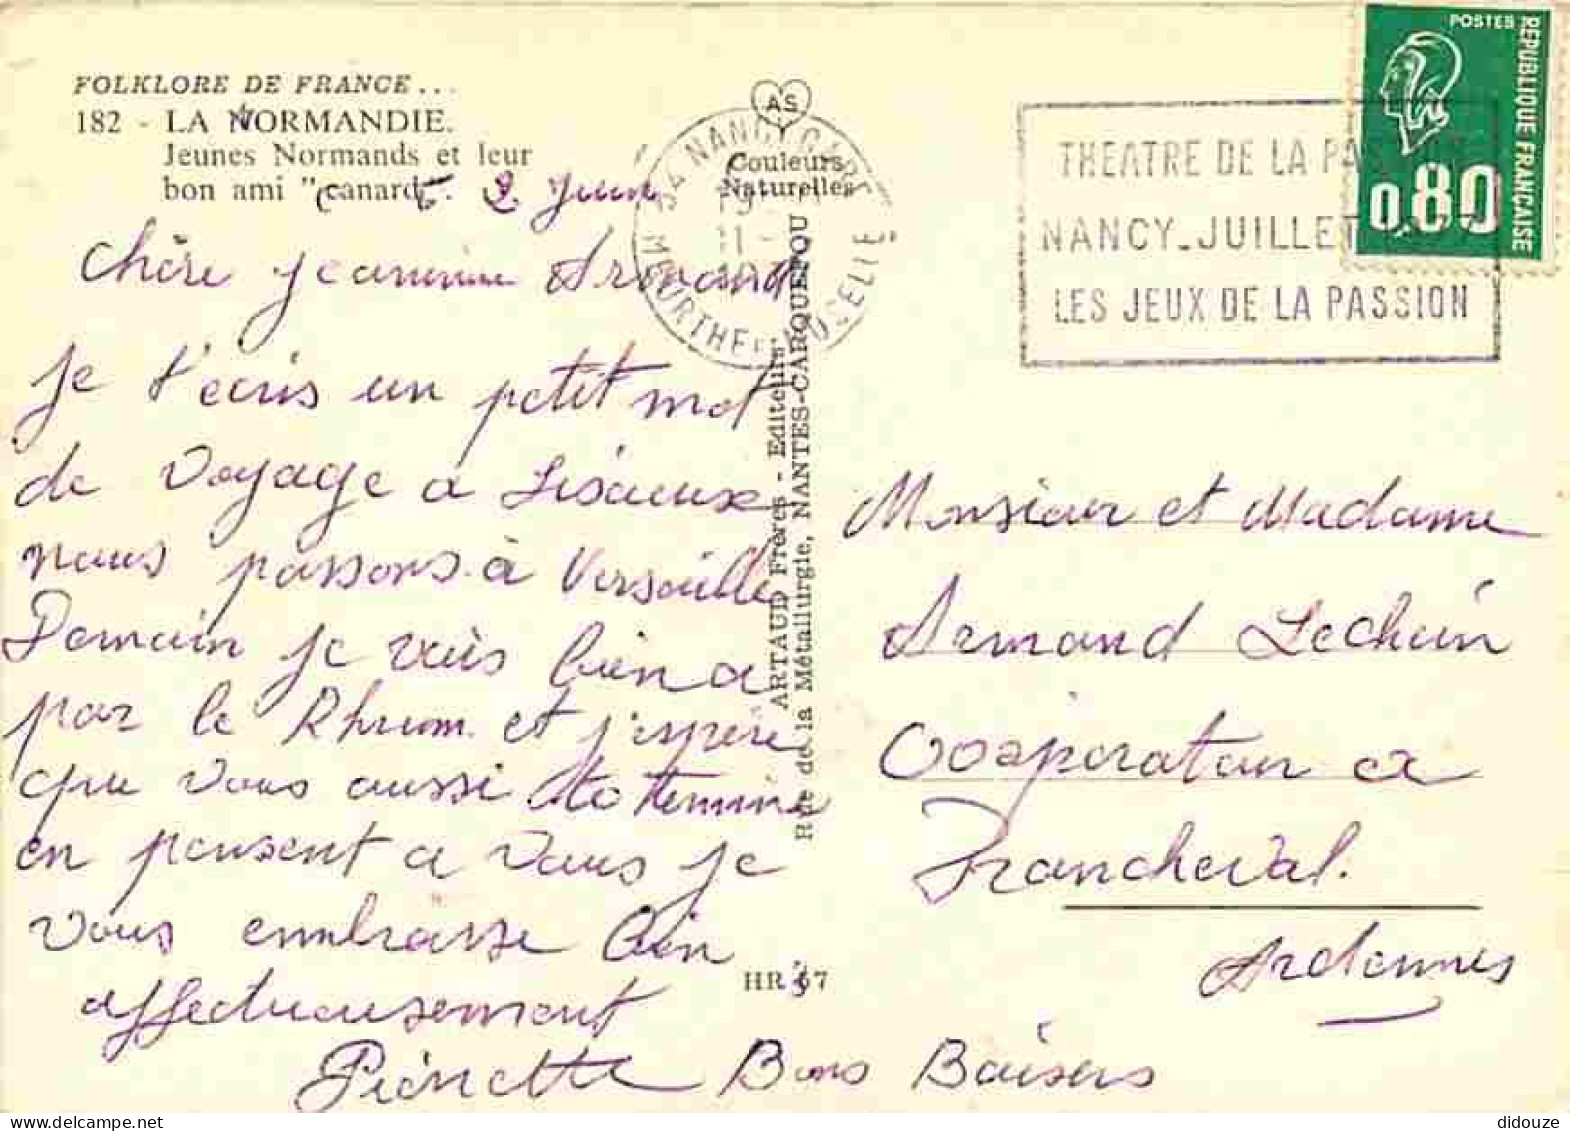 FOLKLORE DE FRANCE...
182 - LA NORMANDIE.
Jeunes Normands et leur
bon ami "canard".
Juin
Chère Jeannine Armand
Je t'ecris un petit mot
de voyage a Lisieux
nous passons à Versaille
Demain je vais bien a
par le Rhum et j'espère
que vous aussi
en pensent a vous je
vous embrasse bien
affectueusement
Pierrette Bons Baisers
AS
Couleurs
Naturelles
54 NANCY GARE
MEURTHE-ET-MOSELLE
ARTAUD Frères - Editeurs
Rue de la Métallurgie, NANTES-CARQUEFOU
HR 67
THEATRE DE LA PASSION
NANCY_JUILLET
LES JEUX DE LA PASSION
POSTES
REPUBLIQUE FRANÇAISE
0,80
Monsieur et Madame
Armand Lechein
Francheval.
Ardennes
didouze